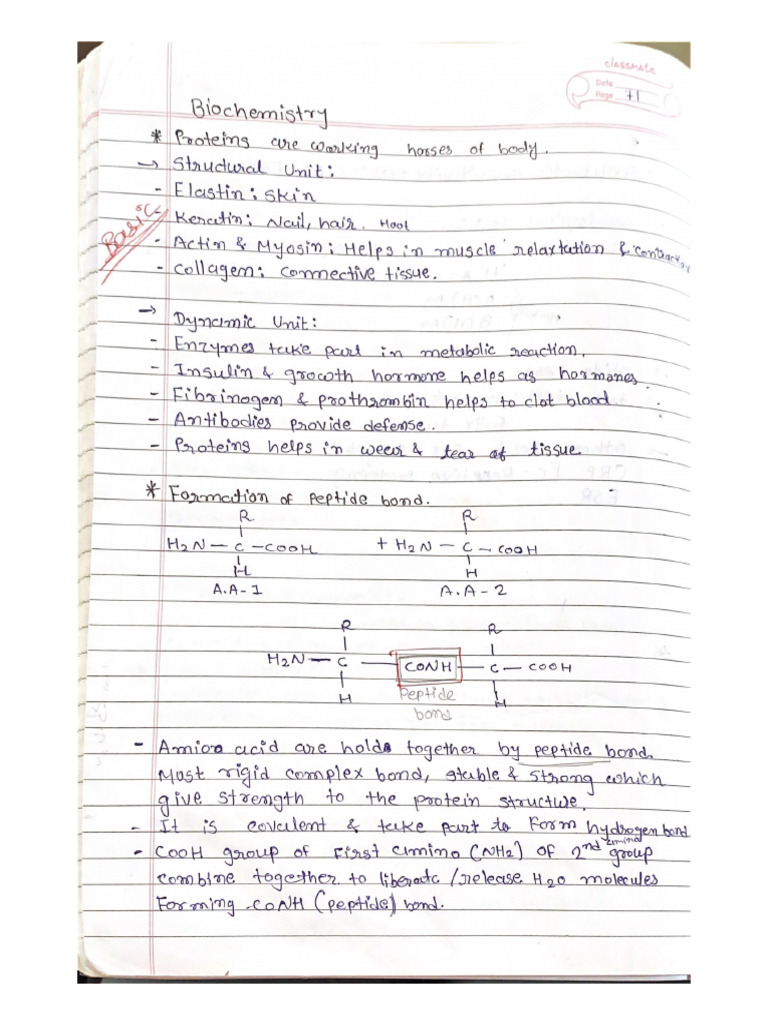 classmate
Date
Page 71
Biochemistry
* Proteins are working horses of body.
→ Structural Unit:
- Elastin: Skin
Basics
- Keratin: Nail, hair. Hoof
- Actin & Myosin: Helps in muscle relaxtation & contraction
- Collagen: Connective tissue.
→ Dynamic Unit:
- Enzymes take part in metabolic reaction.
- Insulin & growth hormone helps as hormones.
- Fibrinogen & prothrombin helps to clot blood.
- Antibodies provide defense.
- Proteins helps in wear & tear of tissue
* Formation of Peptide bond.
R R
H2N — C — COOH + H2N — C — COOH
H H
A.A-1 A.A-2
R R
H2N — C — CONH — C — COOH
H H
Peptide
bond
- Amino acid are holds together by peptide bond.
Most rigid complex bond, stable & strong which
give strength to the protein structure.
- It is covalent & take part to form hydrogen bond
- COOH group of first amino (NH2) of 2nd amino group
combine together to liberate/release H2O molecules
Forming -CONH (peptide) bond.